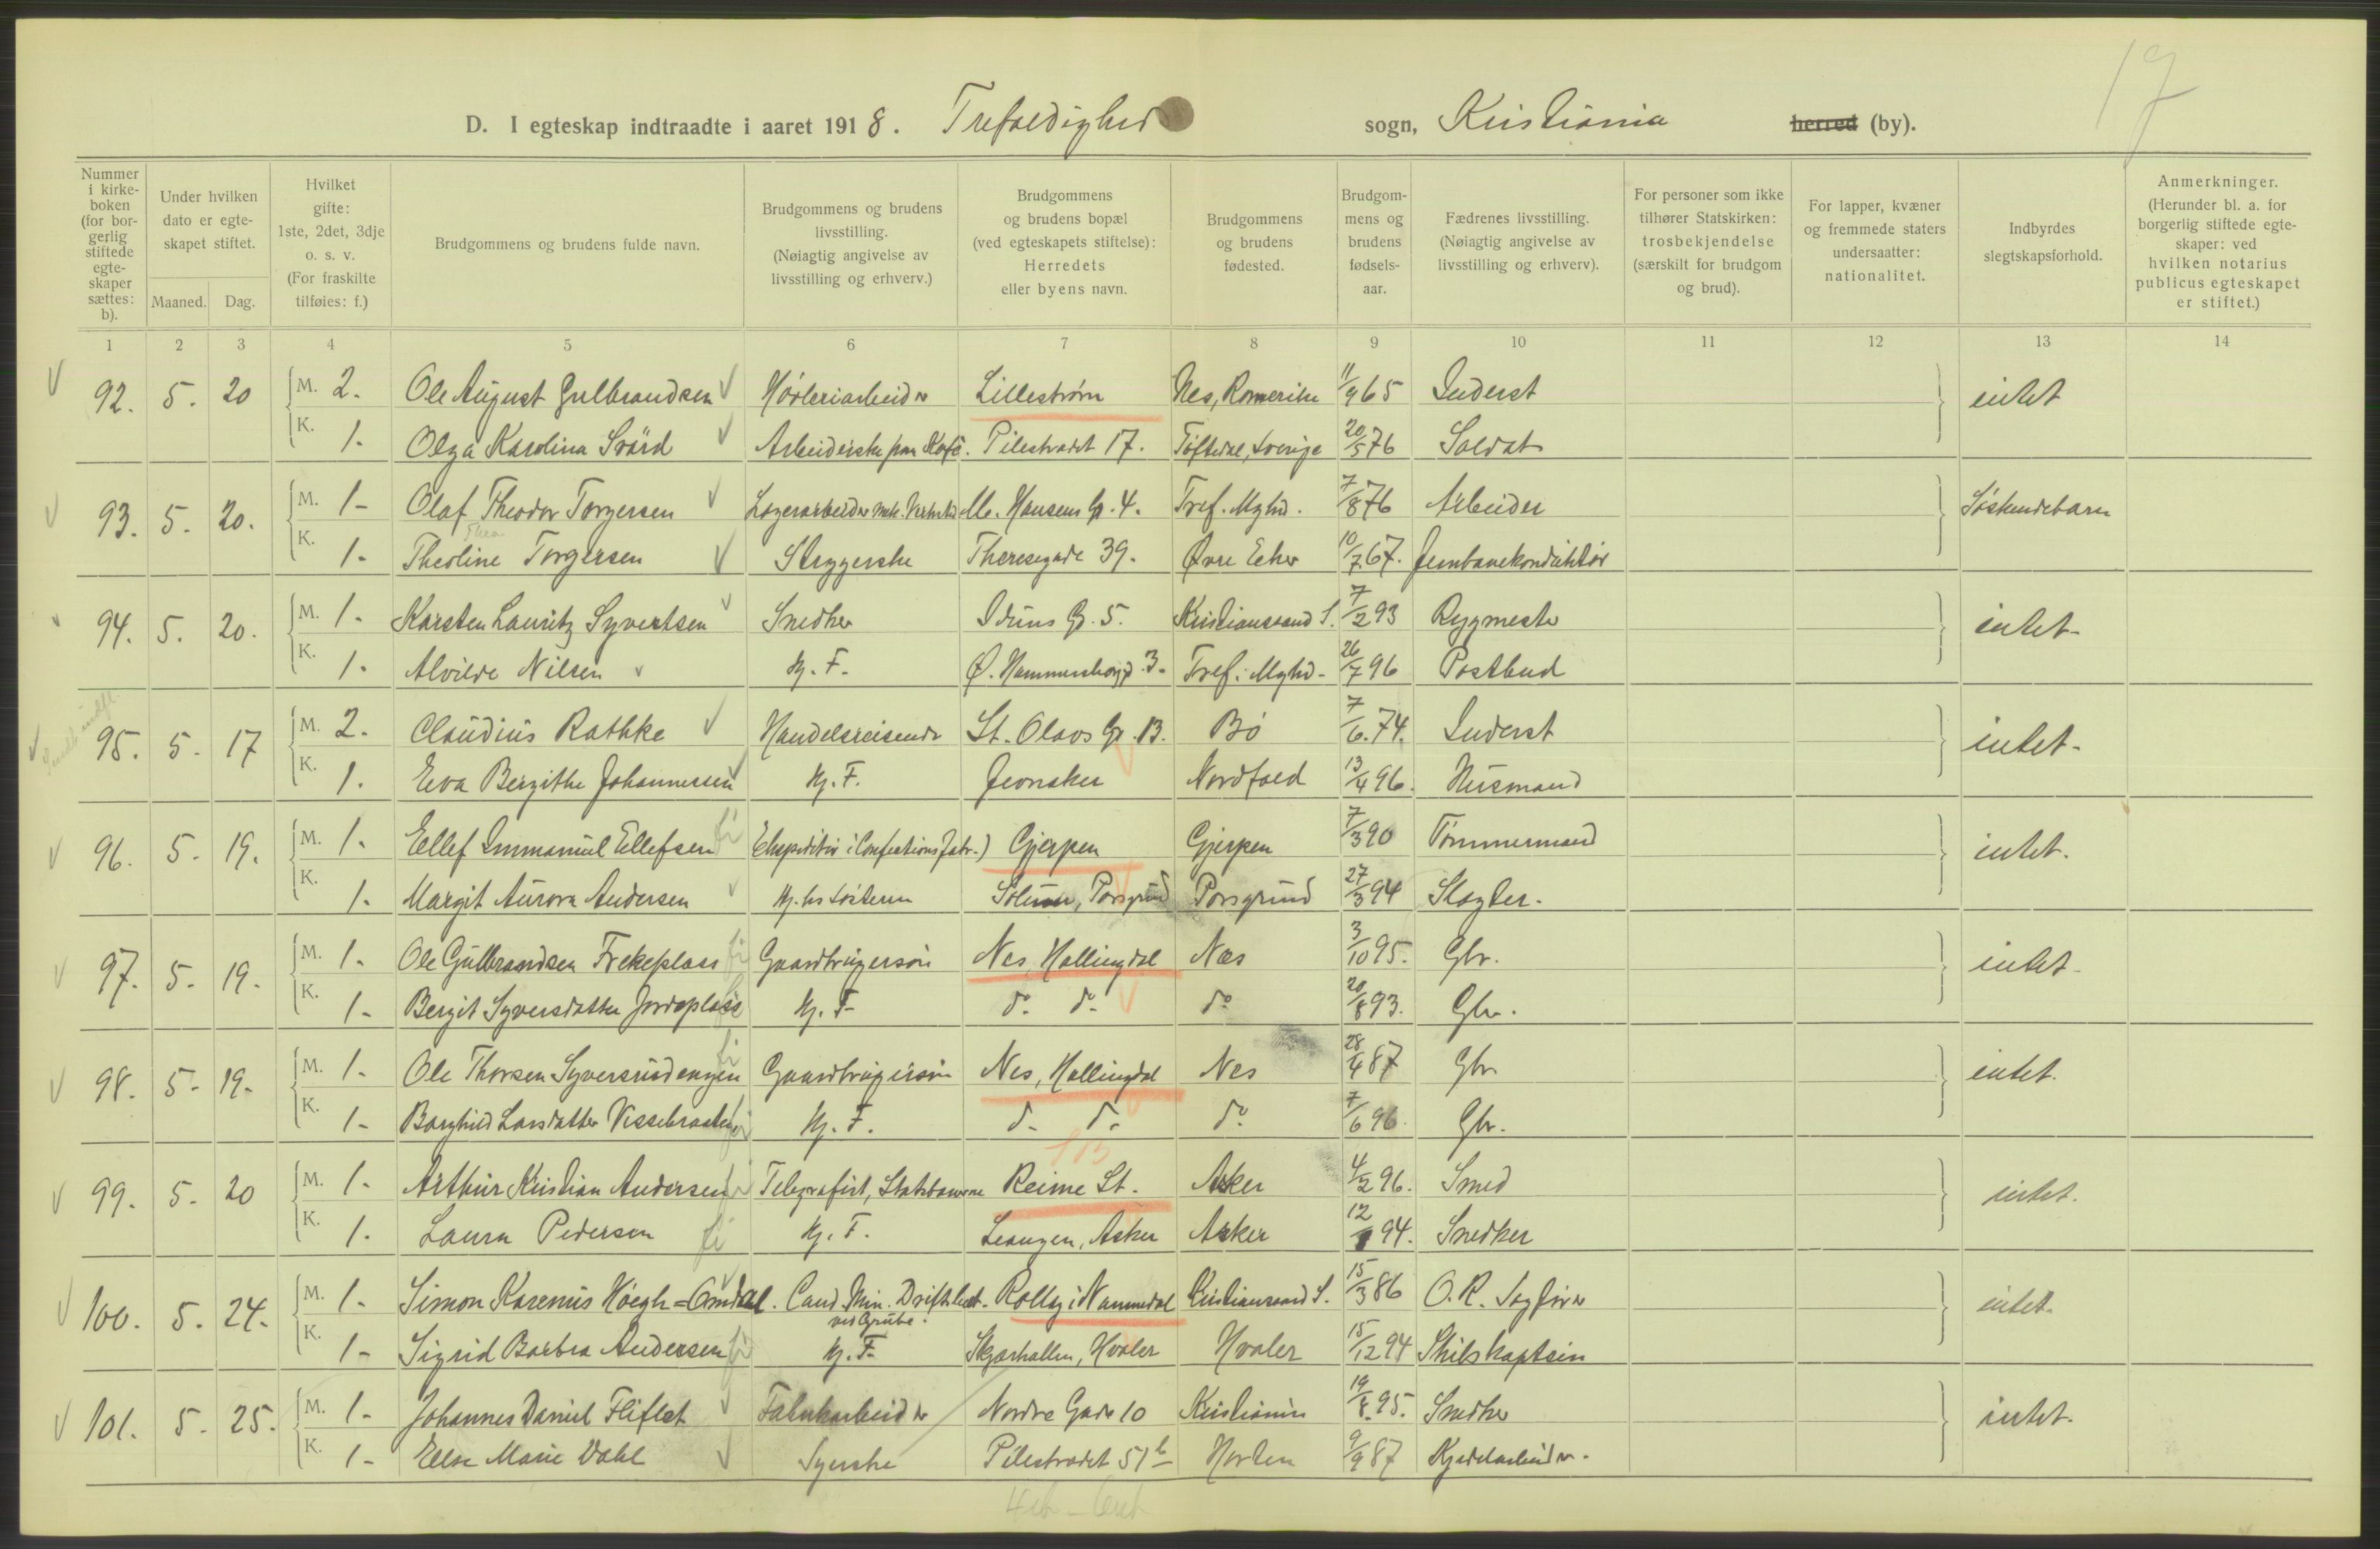 17
D. I egteskap indtraadte i aaret 1918. Trefoldighed sogn, Kristiania herred (by).
Nummer i kirkeboken (for borgerlig stiftede egteskaper sættes: b).
Under hvilken dato er egteskapet stiftet.
Maaned. Dag.
Hvilket gifte: 1ste, 2det, 3dje o. s. v. (For fraskilte tilføies: f.)
Brudgommens og brudens fulde navn.
Brudgommens og brudens livsstilling. (Nøiagtig angivelse av livsstilling og erhverv.)
Brudgommens og brudens bopæl (ved egteskapets stiftelse): Herredets eller byens navn.
Brudgommens og brudens fødested.
Brudgommens og brudens fødselsaar.
Fædrenes livsstilling. (Nøiagtig angivelse av livsstilling og erhverv).
For personer som ikke tilhører Statskirken: trosbekjendelse (særskilt for brudgom og brud).
For lapper, kvæner og fremmede staters undersaatter: nationalitet.
Indbyrdes slegtskapsforhold.
Anmerkninger. (Herunder bl. a. for borgerlig stiftede egteskaper: ved hvilken notarius publicus egteskapet er stiftet.)
1 2 3 4 5 6 7 8 9 10 11 12 13 14
92. 5. 20 M. 2. Ole August Gulbrandsen Høvleriarbeider Lillestrøm Nes, Romerike 11/9 65 Inderst intet
K. 1. Olga Karolina Svärd Arbeiderske paa Kafé. Pilestrædet 17. Töftedal, Sverige 20/5 76 Soldat
93. 5. 20. M. 1- Olaf Theodor Torgersen Lagerarbeider mek. Verksted M. Hansens G. 4. Tref. Mghd. 7/8 76 Arbeider Søskendebarn
Thea
K. 1- Theoline Torgersen Strygerske Theresegade 39. Øvre Eker 10/7 67. Jernbanekonduktør
94. 5. 20. M. 1. Karsten Lauritz Syvertsen Snedker Iduns G. 5. Kristianssand S. 7/2 93 Bygmester intet-
K. 1. Alvilde Nilsen Hj. F. Ø. Hammersborg 3. Tref. Mghd- 26/7 96 Postbud
95. 5- 17 M. 2. Claudius Rathke Handelsreisende St. Olavs G. 13. Bö 7/6. 74. Inderst intet-
K. 1. Eva Bergithe Johannessen Hj. F. Jevnaker Nordfold 13/4 96. Husmand
96. 5- 19. M. 1. Ellef Immanuel Ellefsen Ekspeditør i Confectionsfabr.) Gjerpen Gjerpen 7/3 90 Tømmermand intet.
K. 1. Margit Aurora Andersen Hj. hos Søsteren Solum, Porsgrund Porsgrund 27/3 94 Slagter.
97. 5- 19. M. 1. Ole Gulbrandsen Trekeplass Gaardbrugersøn Nes, Hallingdal Nes 3/10 95. Gbr. intet-
K. 1- Bergit Syversdatter Jordeplass Hj. F- do. do. do 20/8 93. Gbr.
98. 5- 19- M. 1. Ole Thorsen Syversrudengen Gaardbrugersøn Nes, Hallingdal Nes 28/4 87 Gbr intet.
K. 1- Borghild Larsdatter Vissebraaten Hj. F. do. do. do 7/6 96. Gbr.
99. 5- 20 M. 1. Arthur Kristian Andersen Telegrafist, Statsbanerne Reime St. Asker 4/2 96. Smed intet.
K. 1. Laura Pedersen Hj. F. Leangen, Asker Asker 12/ 94. Snedker
100. 5. 24. M. 1. Simon Karenius Høegh=Omdal. Cand. Min. Driftsbest. ved Grube. Rollag i Nummedal Kristianssand S. 15/3 86 O. R. Sagfører intet.
K. 1- Sigrid Barbra Andersen Hj. F- Skjærhallen, Hvaler Hvaler 15/12 94 Skibskaptein
101. 5- 25. M. 1- Johannes Daniel Fliflet Fabrikarbeider Nordre Gade 10 Kristiania 19/8. 95. Snedker intet.
K. 1- Else Marie Dahl Syerske Pilestrædet 51b Horten 9/9 87 Kjedelarbeider.